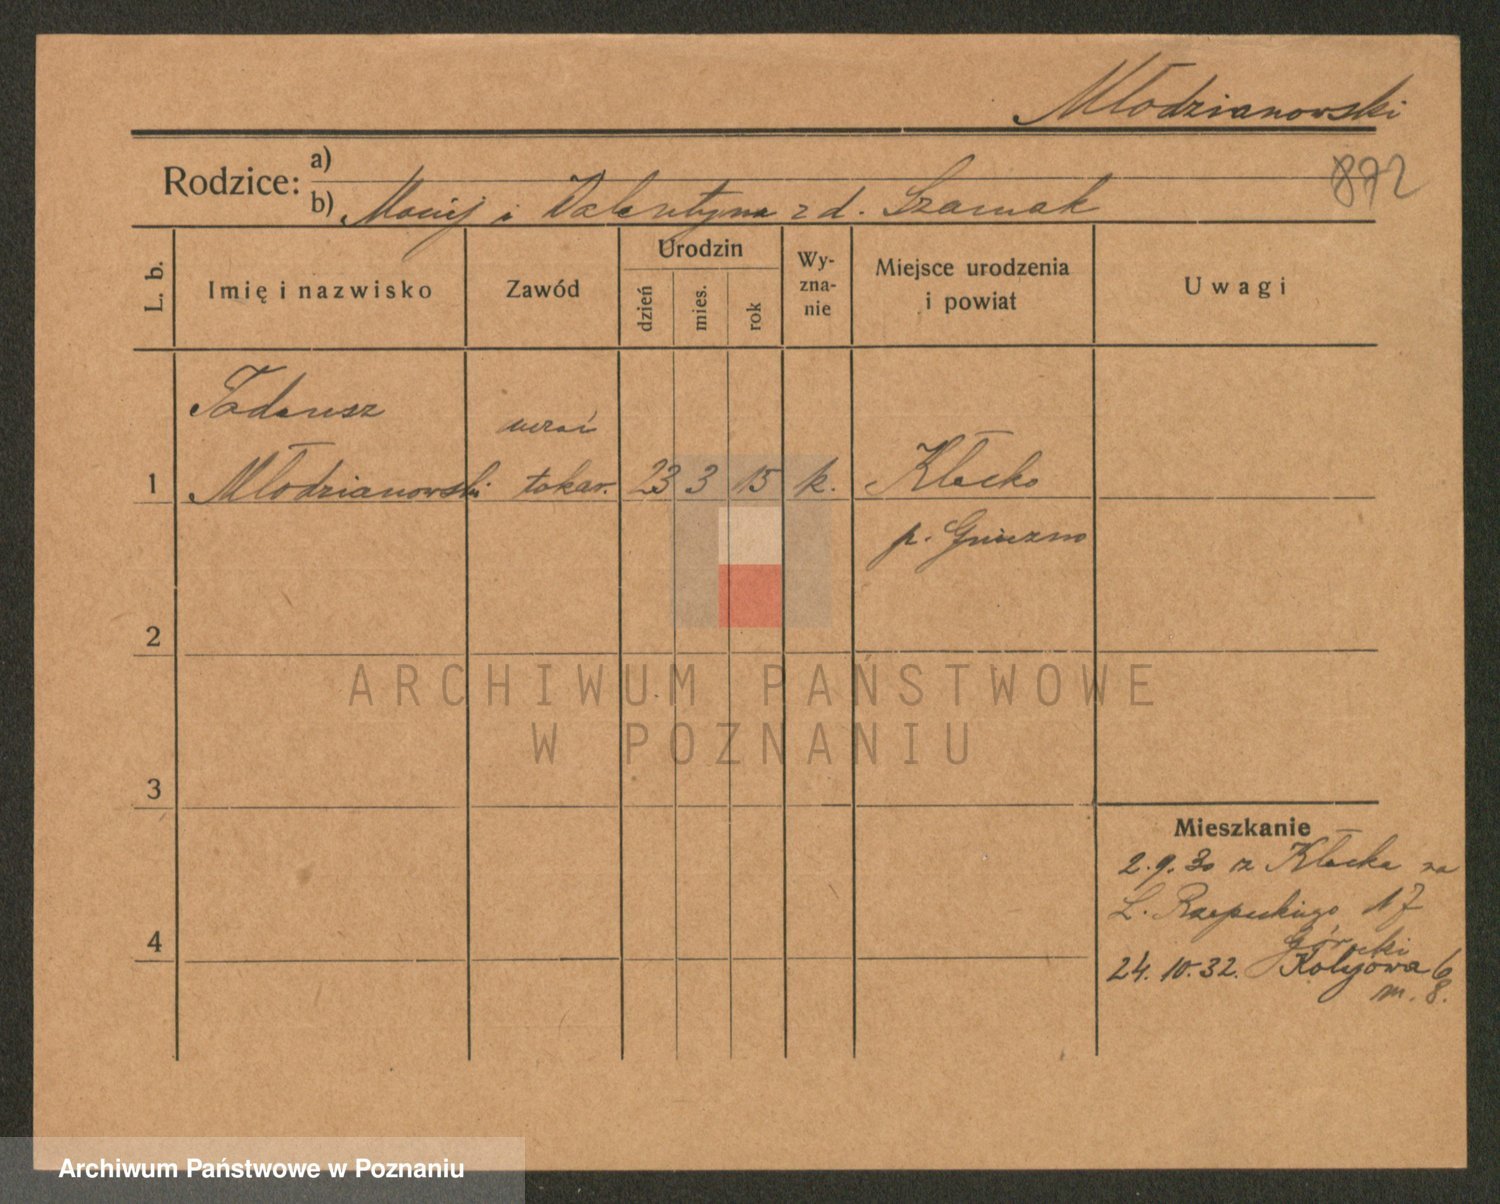 Młodzianowski
872
Rodzice: a)
b) Maciej i Walentyna z d. Szamak
L. b.
Imię i nazwisko
Zawód
Urodzin
dzień
mies.
rok
Wy-
zna-
nie
Miejsce urodzenia
i powiat
Uwagi
Tadeusz
uczeń
1 Młodzianowski tokar. 23 3 15 k. Kłecko
p. Gniezno
2
ARCHIWUM PAŃSTWOWE
W POZNANIU
3
Mieszkanie
2.9.30 z Kłecka na
L. Rzepeckiego 17
4
24.10.32. Kolejowa 6
m. 8.
Archiwum Państwowe w Poznaniu